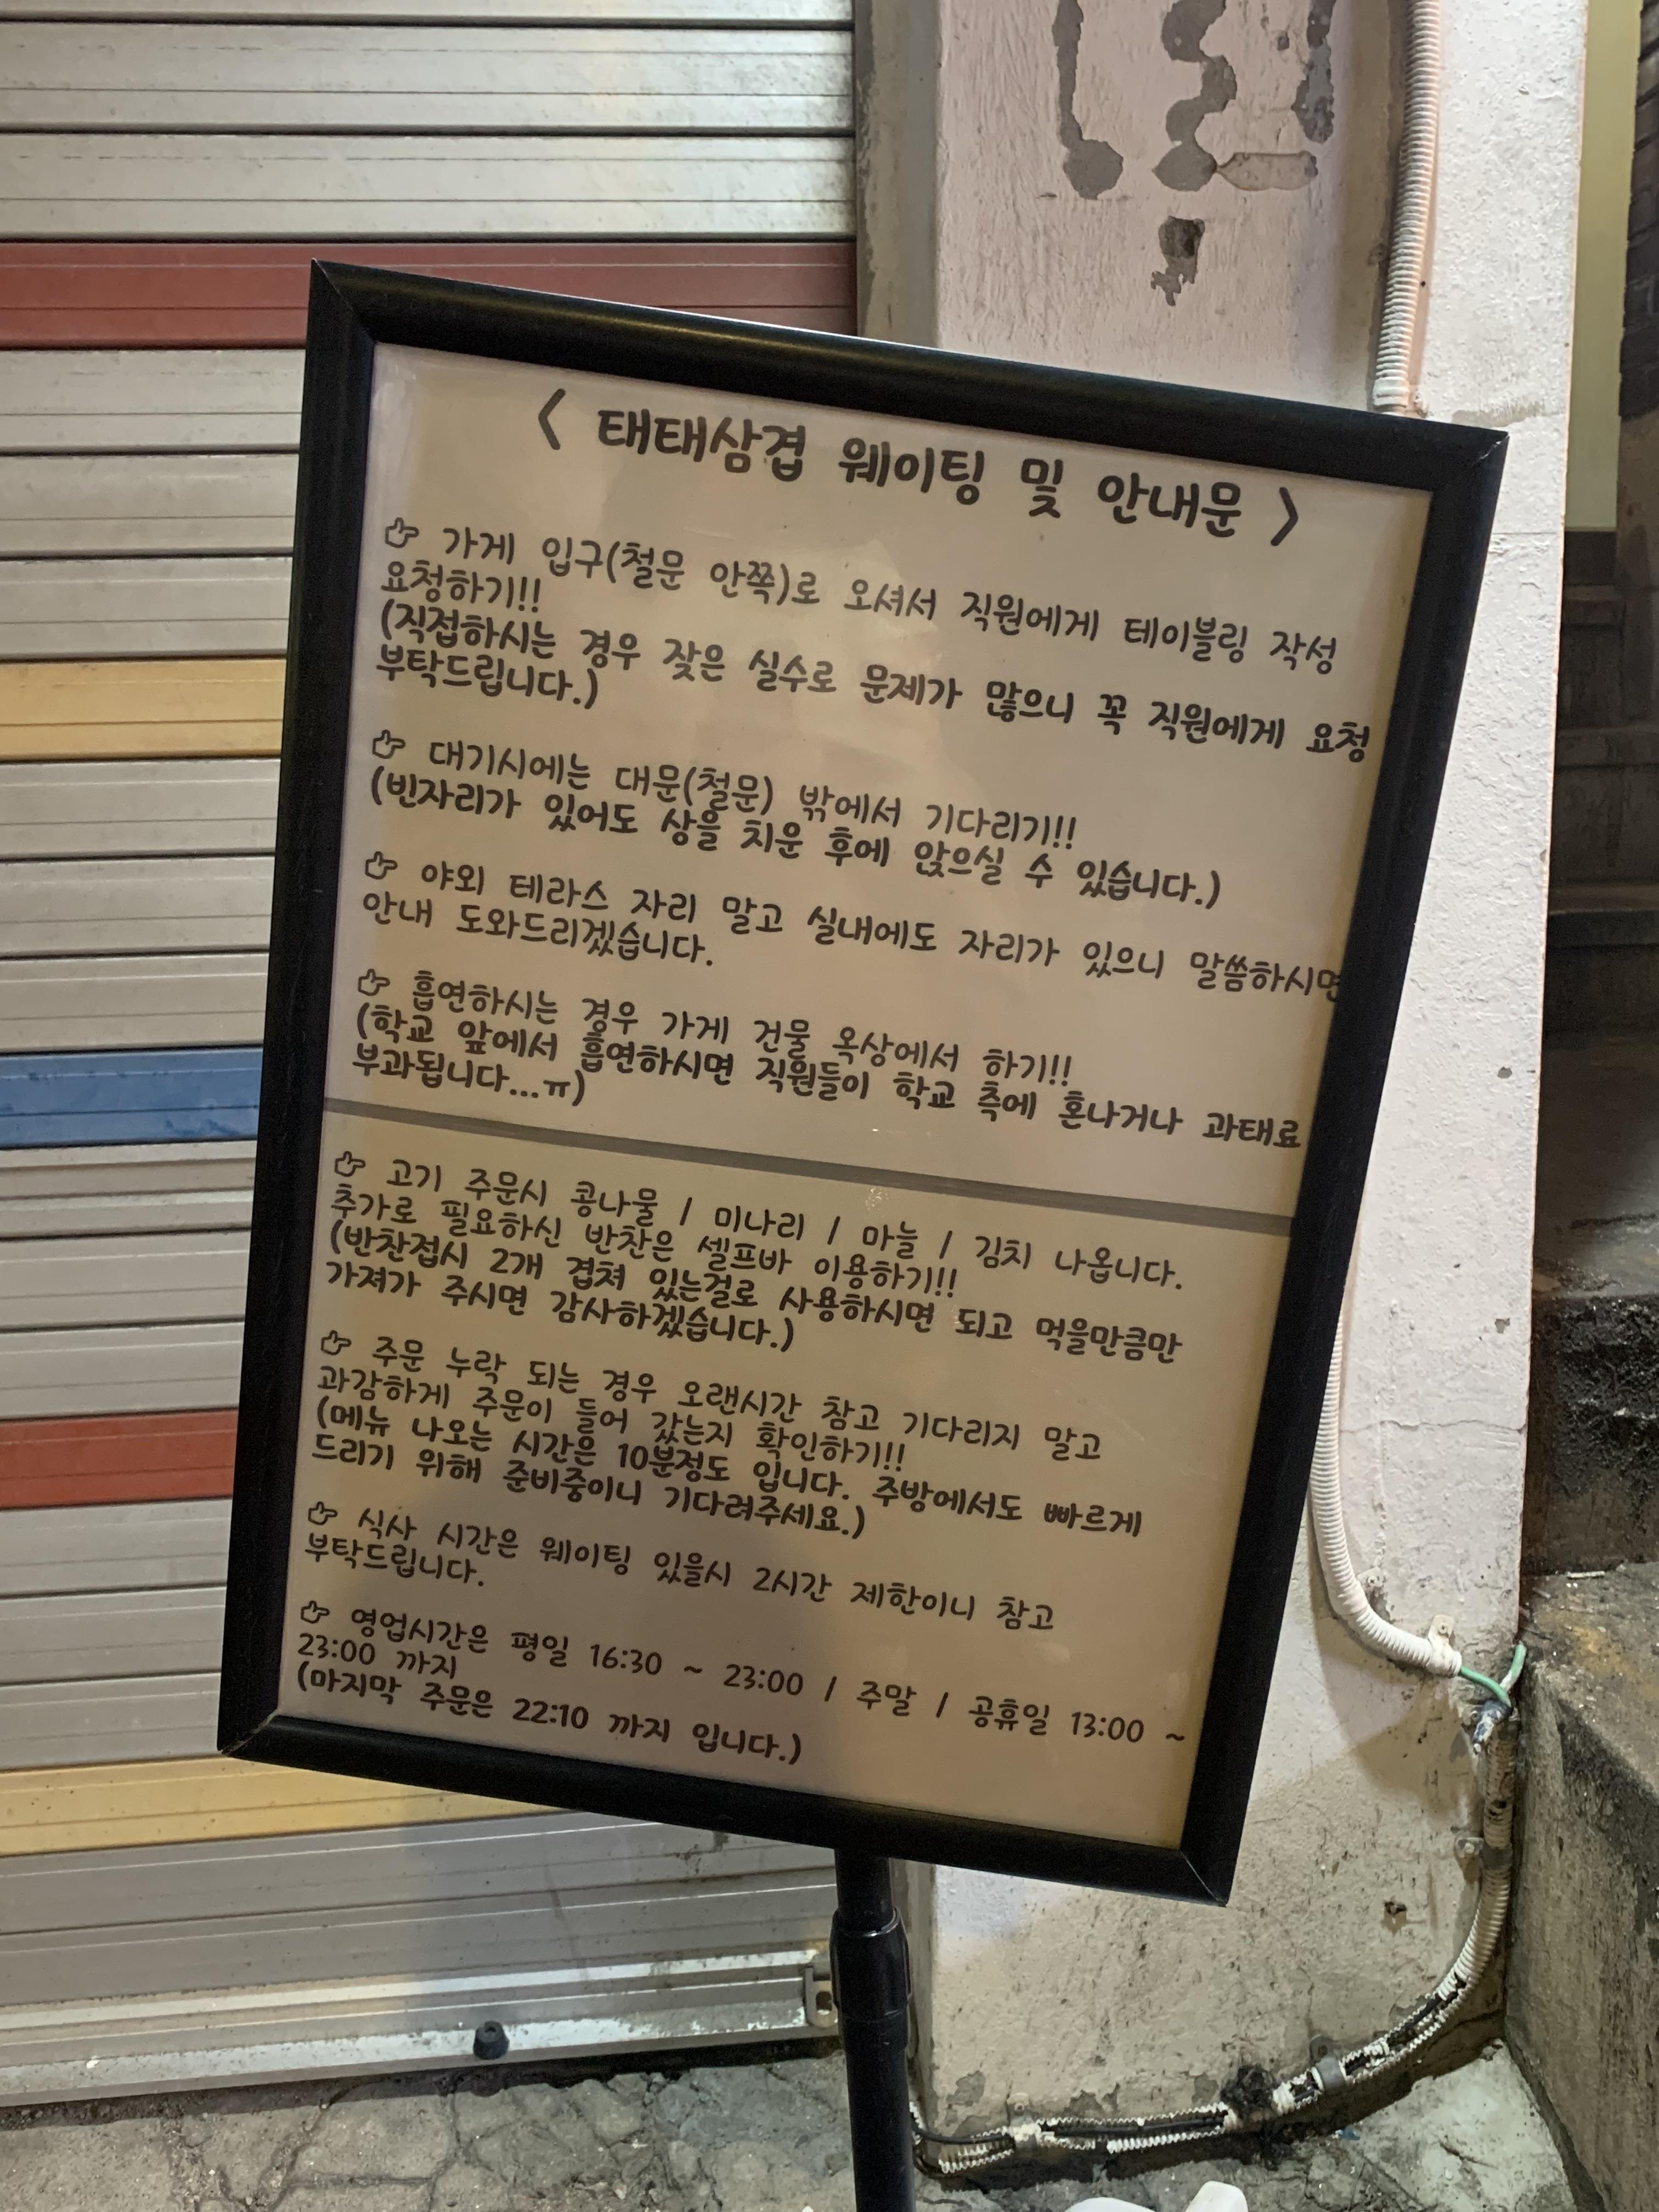 < 태태삼겹 웨이팅 및 안내문 >
👉 가게 입구(철문 안쪽)로 오셔서 직원에게 테이블링 작성
요청하기!!
(직접하시는 경우 잦은 실수로 문제가 많으니 꼭 직원에게 요청
부탁드립니다.)
👉 대기시에는 대문(철문) 밖에서 기다리기!!
(빈자리가 있어도 상을 치운 후에 앉으실 수 있습니다.)
👉 야외 테라스 자리 말고 실내에도 자리가 있으니 말씀하시면
안내 도와드리겠습니다.
👉 흡연하시는 경우 가게 건물 옥상에서 하기!!
(학교 앞에서 흡연하시면 직원들이 학교 측에 혼나거나 과태료
부과됩니다...ㅠ)
👉 고기 주문시 콩나물 / 미나리 / 마늘 / 김치 나옵니다.
추가로 필요하신 반찬은 셀프바 이용하기!!
(반찬접시 2개 겹쳐 있는걸로 사용하시면 되고 먹을만큼만
가져가 주시면 감사하겠습니다.)
👉 주문 누락 되는 경우 오랜시간 참고 기다리지 말고
과감하게 주문이 들어 갔는지 확인하기!!
(메뉴 나오는 시간은 10분정도 입니다. 주방에서도 빠르게
드리기 위해 준비중이니 기다려주세요.)
👉 식사 시간은 웨이팅 있을시 2시간 제한이니 참고
부탁드립니다.
👉 영업시간은 평일 16:30 ~ 23:00 / 주말 / 공휴일 13:00 ~
23:00 까지
(마지막 주문은 22:10 까지 입니다.)